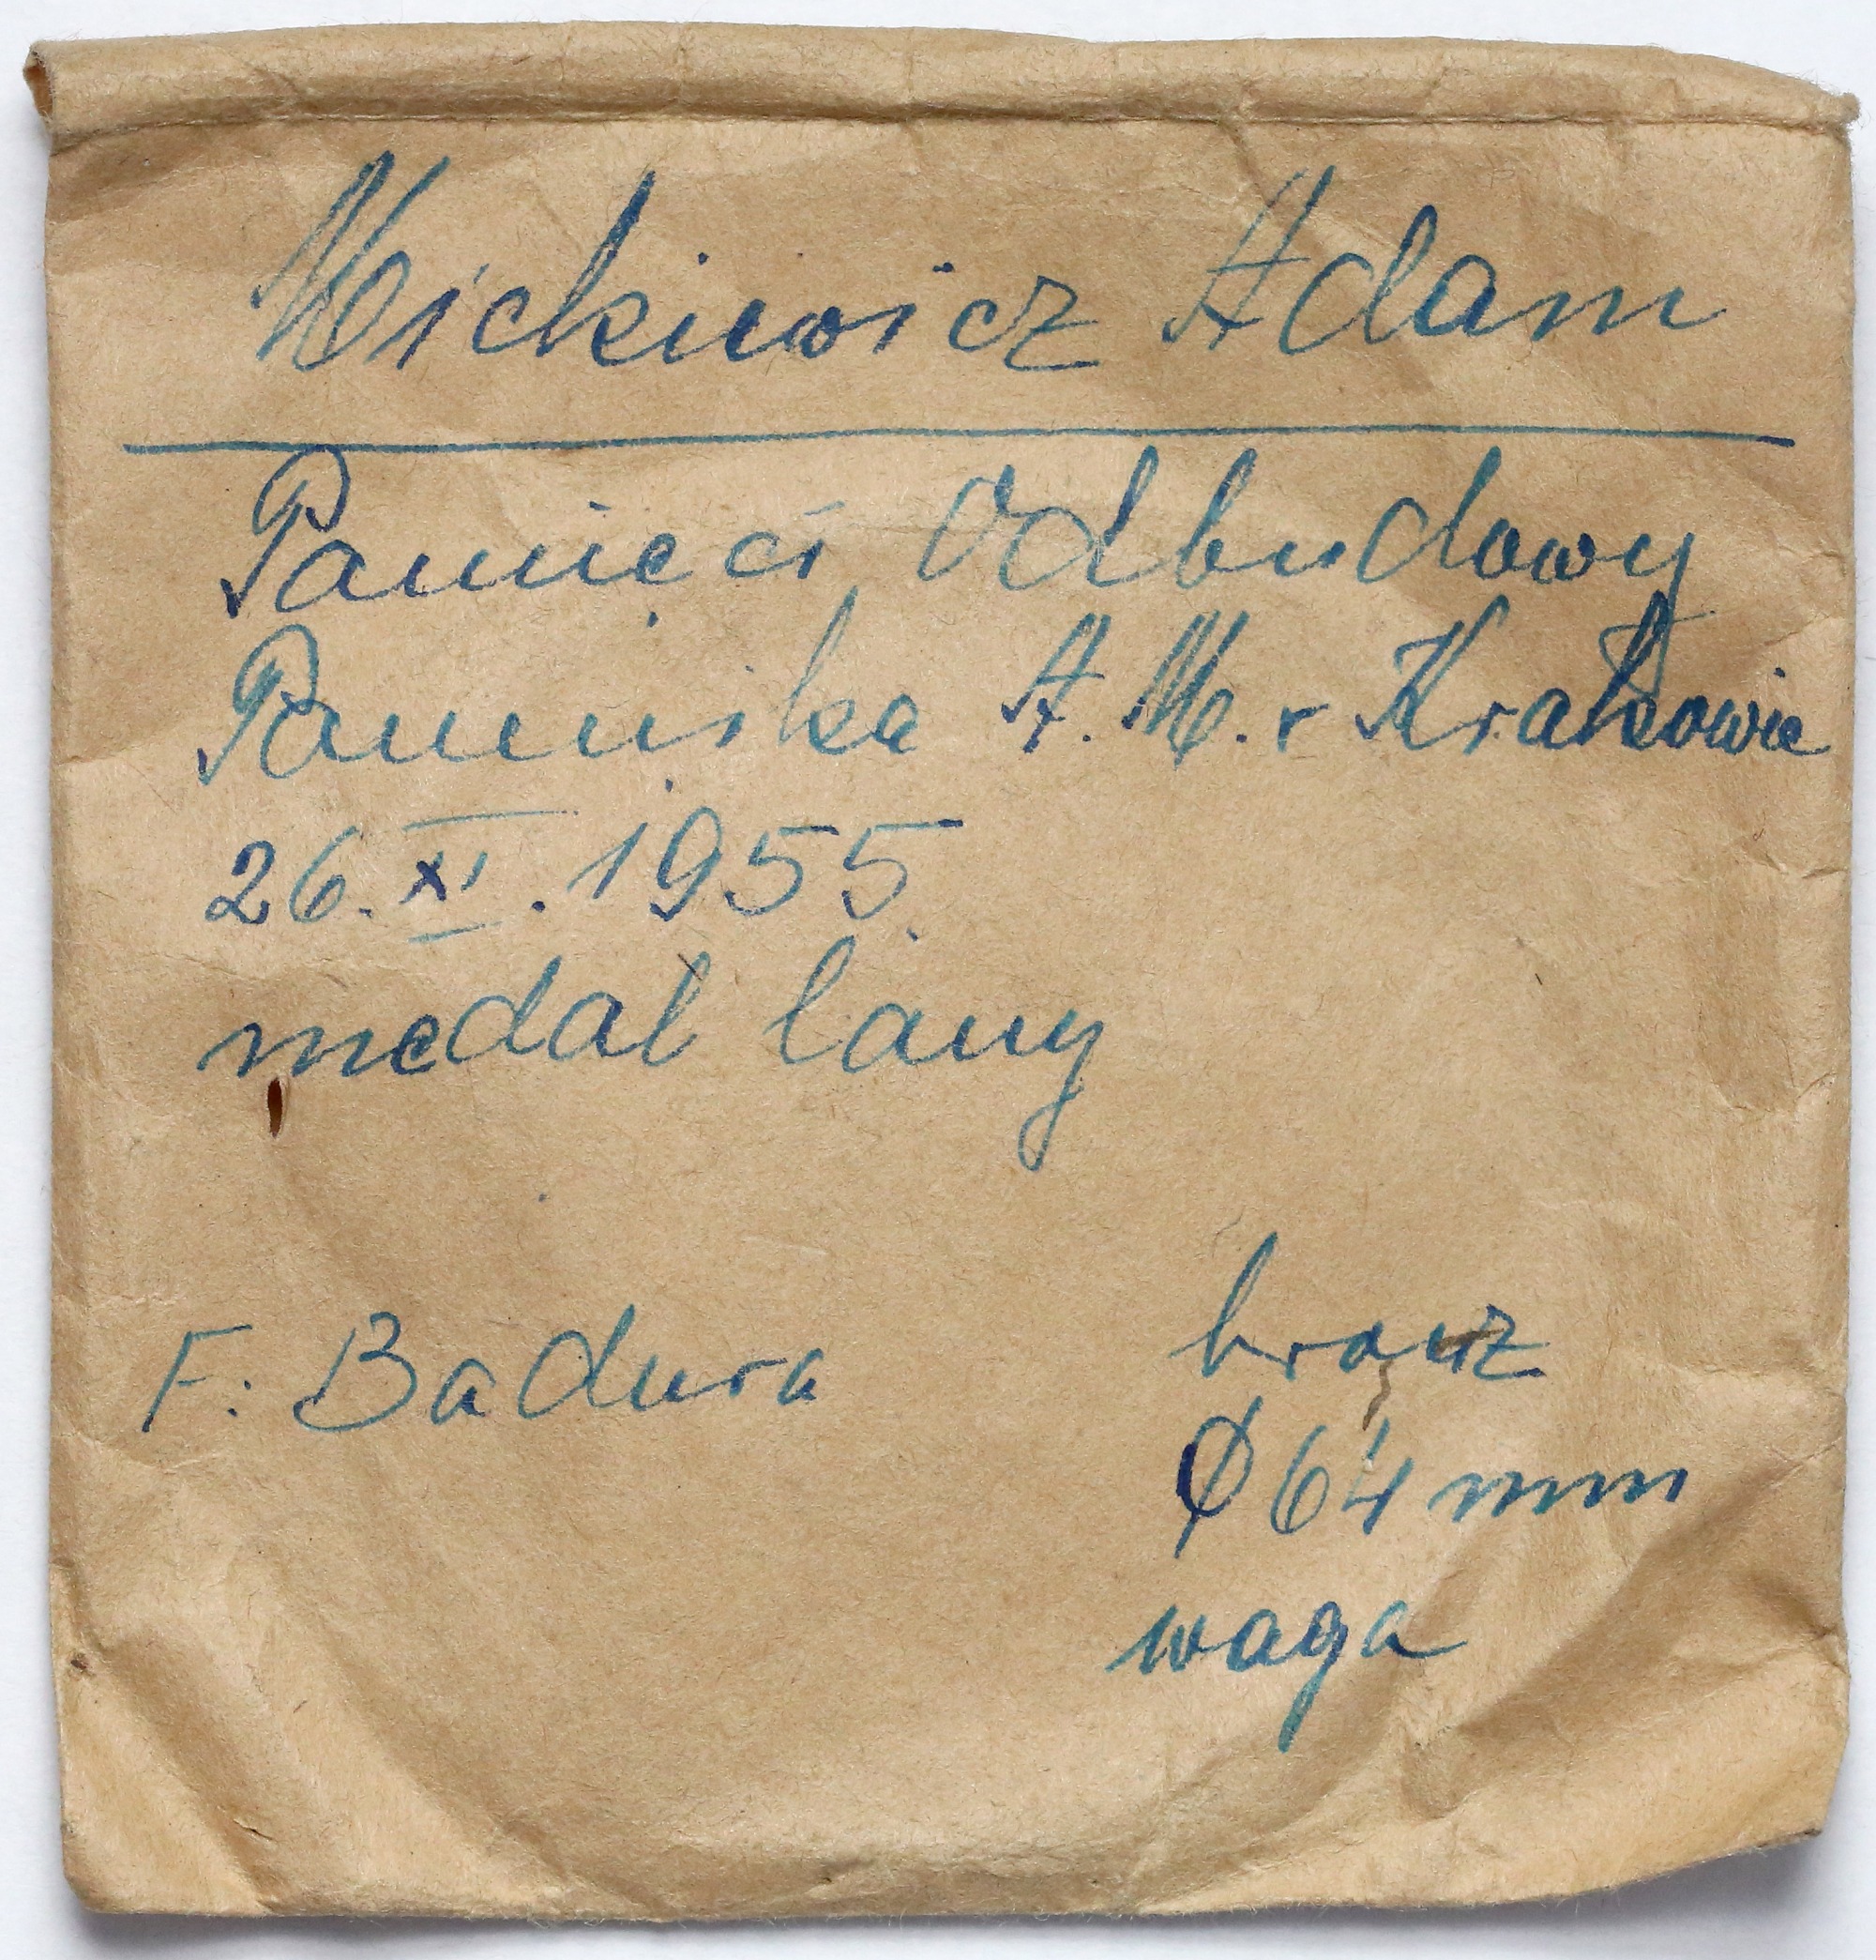 Mickiewicz Adam
Pamięci Odbudowy
Pomnika A. M. w Krakowie
26. XI. 1955
medal lany
F. Badura
brąz
Ø 64 mm
waga